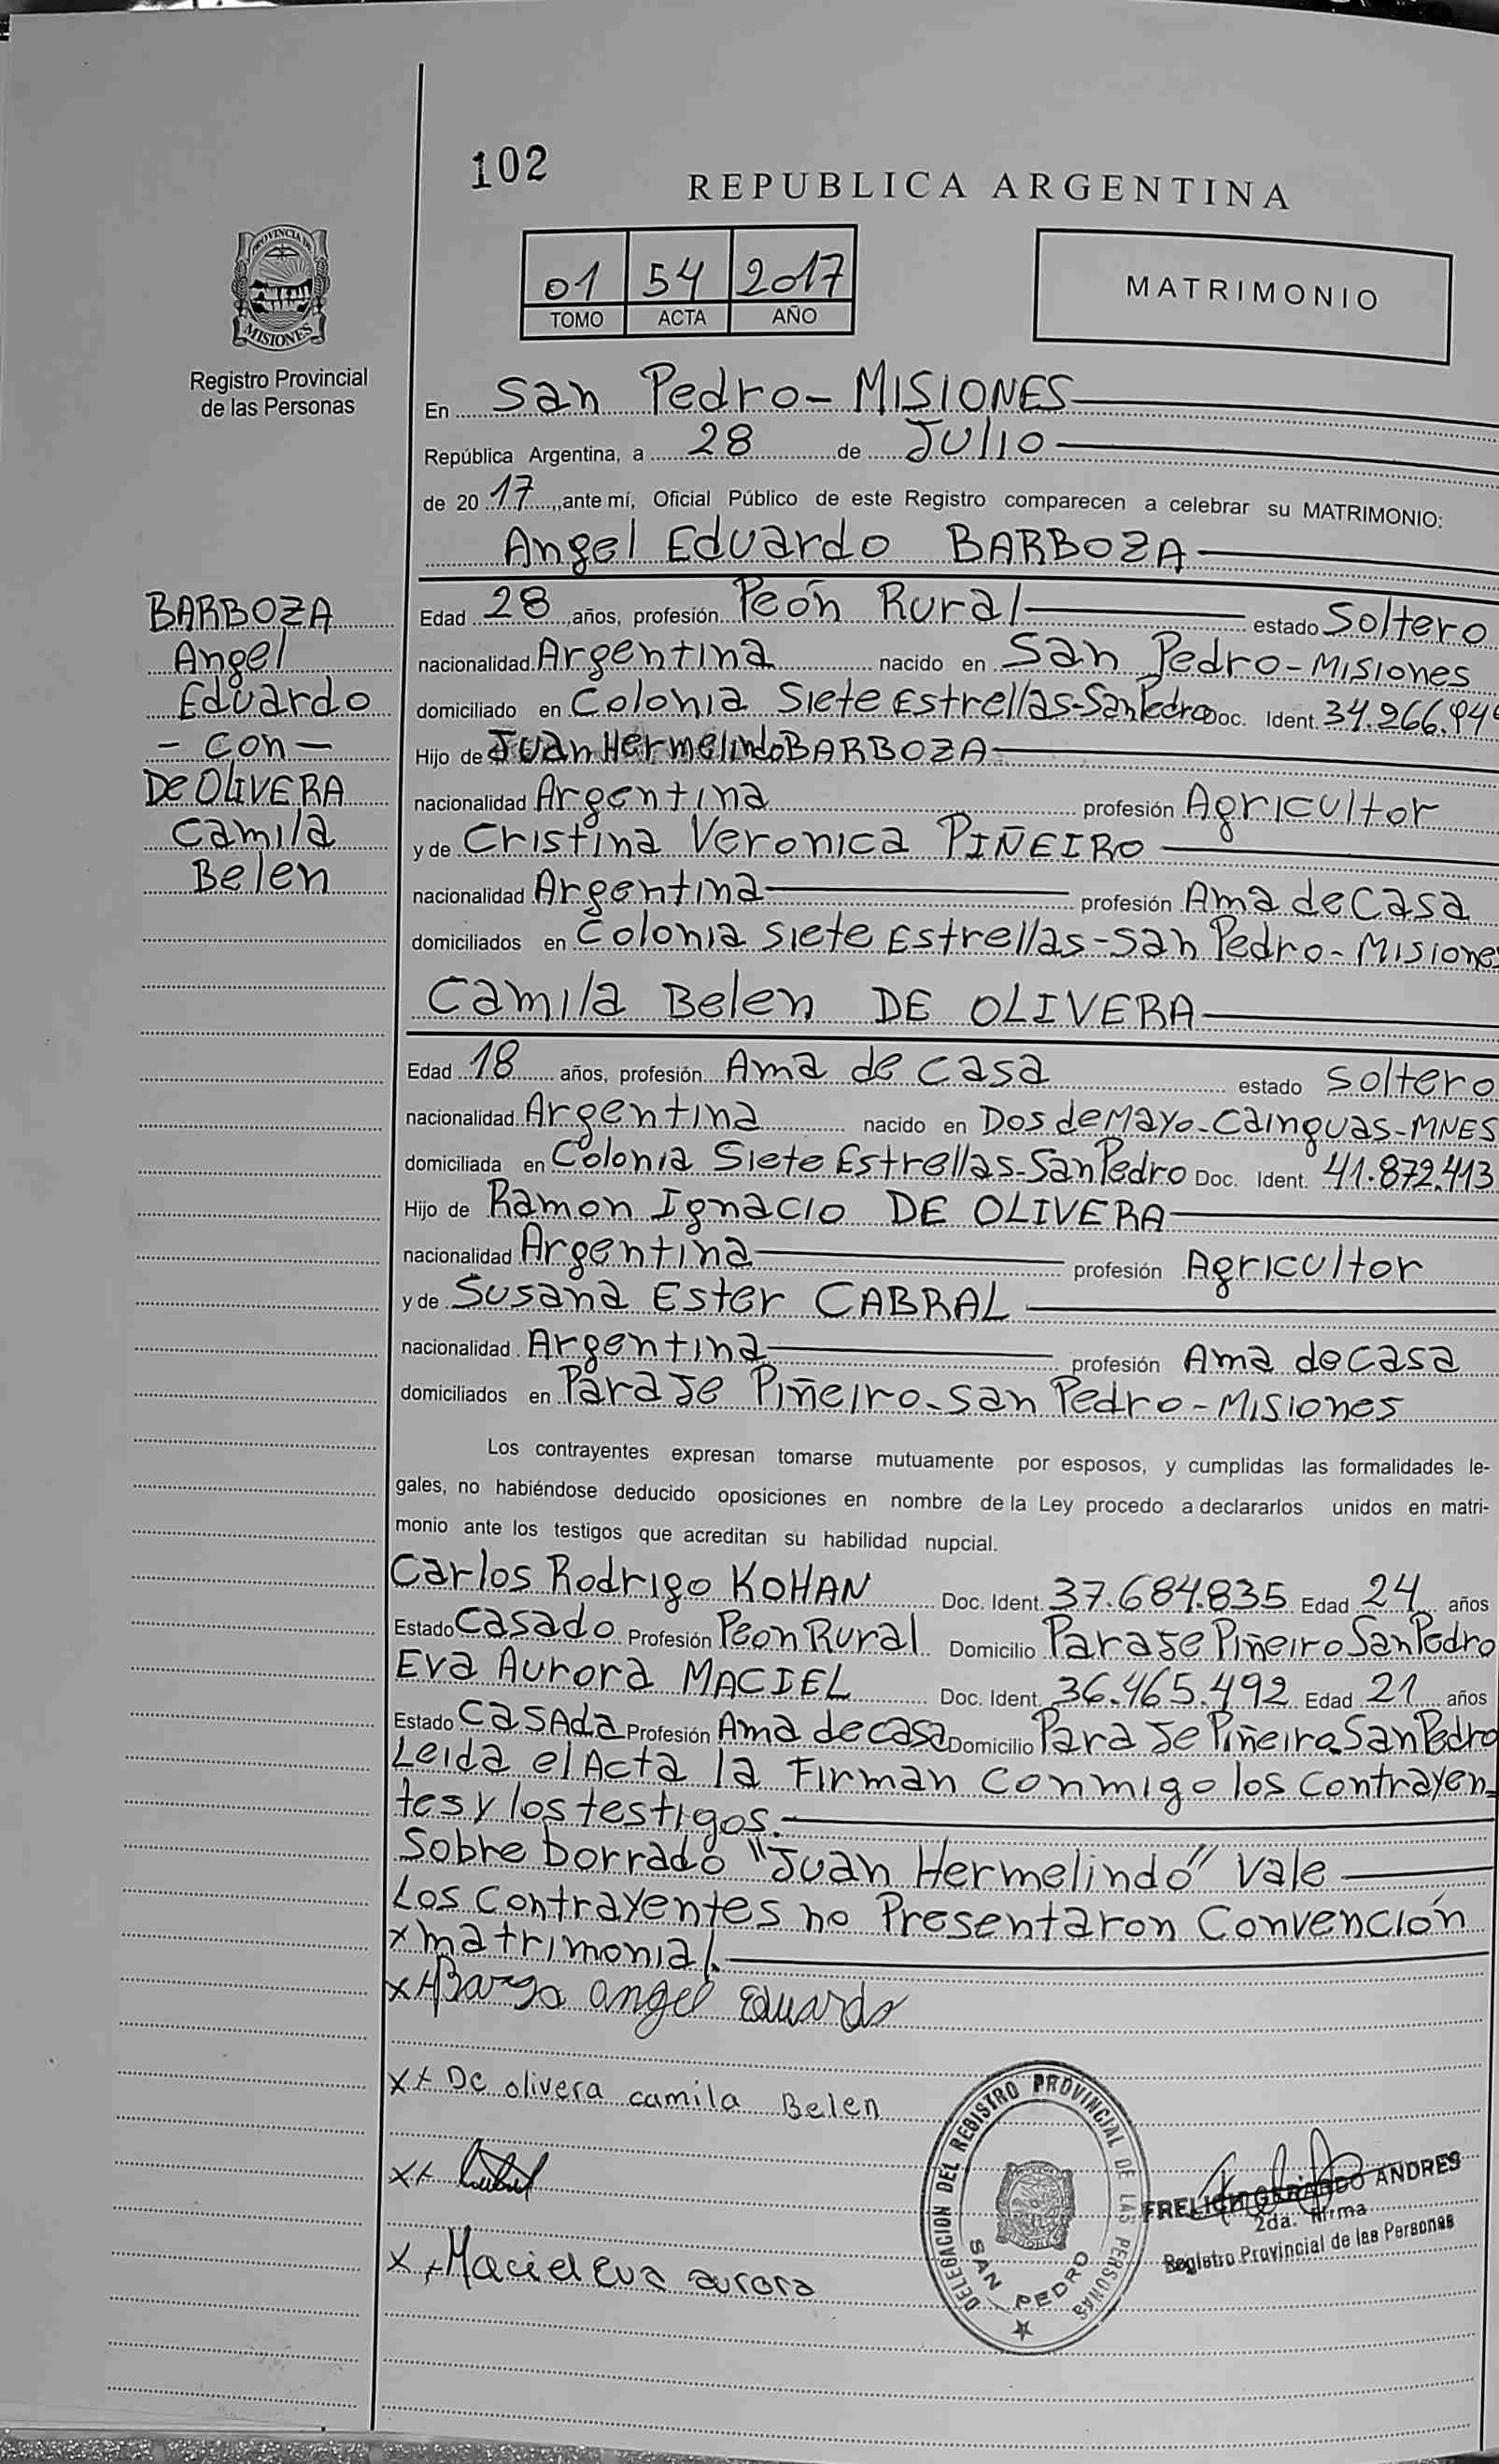 102
REPUBLICA ARGENTINA
PROVINCIA DE
MISIONES
Registro Provincial
de las Personas
01 54 2017
TOMO ACTA AÑO
MATRIMONIO
En San Pedro - MISIONES
República Argentina, a 28 de Julio
de 20 17, ante mí, Oficial Público de este Registro comparecen a celebrar su MATRIMONIO:
Angel Eduardo BARBOZA
BARBOZA
Angel
Eduardo
- con -
De OLIVERA
Camila
Belen
Edad 28 años, profesión Peón Rural estado Soltero
nacionalidad Argentina nacido en San Pedro - Misiones
domiciliado en Colonia Siete Estrellas - San Pedro Doc. Ident. 34.266.
Hijo de Juan Hermelindo BARBOZA
nacionalidad Argentina profesión Agricultor
y de Cristina Veronica PIÑEIRO
nacionalidad Argentina profesión Ama de Casa
domiciliados en Colonia Siete Estrellas - San Pedro - Misiones
Camila Belen DE OLIVERA
Edad 18 años, profesión Ama de casa estado Soltero
nacionalidad Argentina nacido en Dos de Mayo - Cainguas - MNES
domiciliada en Colonia Siete Estrellas - San Pedro Doc. Ident. 41.872.413
Hijo de Ramon Ignacio DE OLIVERA
nacionalidad Argentina profesión Agricultor
y de Susana Ester CABRAL
nacionalidad Argentina profesión Ama de Casa
domiciliados en Paraje Piñeiro - San Pedro - Misiones
Los contrayentes expresan tomarse mutuamente por esposos, y cumplidas las formalidades le-
gales, no habiéndose deducido oposiciones en nombre de la Ley procedo a declararlos unidos en matri-
monio ante los testigos que acreditan su habilidad nupcial.
Carlos Rodrigo KOHAN Doc. Ident. 37.684.835 Edad 24 años
Estado Casado Profesión Peon Rural Domicilio Paraje Piñeiro San Pedro
Eva Aurora MACIEL Doc. Ident. 36.465.492 Edad 21 años
Estado Casada Profesión Ama de casa Domicilio Paraje Piñeiro San Pedro
Leida el Acta la Firman conmigo los contrayen-
tes y los testigos.
Sobre borrado "Juan Hermelindo" Vale
Los contrayentes no Presentaron Convención
x matrimonial.
x angel Eduardo
x x De olivera camila Belen
x x
x x Maciel Eva aurora
DELEGACION DEL REGISTRO PROVINCIAL DE LAS PERSONAS
SAN PEDRO
FRELICH GERARDO ANDRES
2da. Firma
Registro Provincial de las Personas